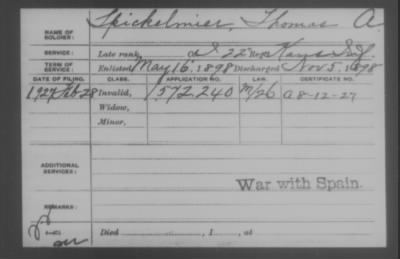 NAME OF SOLDIER: Spickelmier, Thomas A.
SERVICE: Late rank, Co. I, 22 Reg't Kans Inf.
TERM OF SERVICE: Enlisted May 16, 1898 Discharged Nov 5, 1898
DATE OF FILING. CLASS. APPLICATION NO. LAW. CERTIFICATE NO.
1927 Feb 28 Invalid, 1572240 M/26 a8-12-27
Widow,
Minor,
ADDITIONAL SERVICES:
War with Spain.
REMARKS:
Died , 1 , at